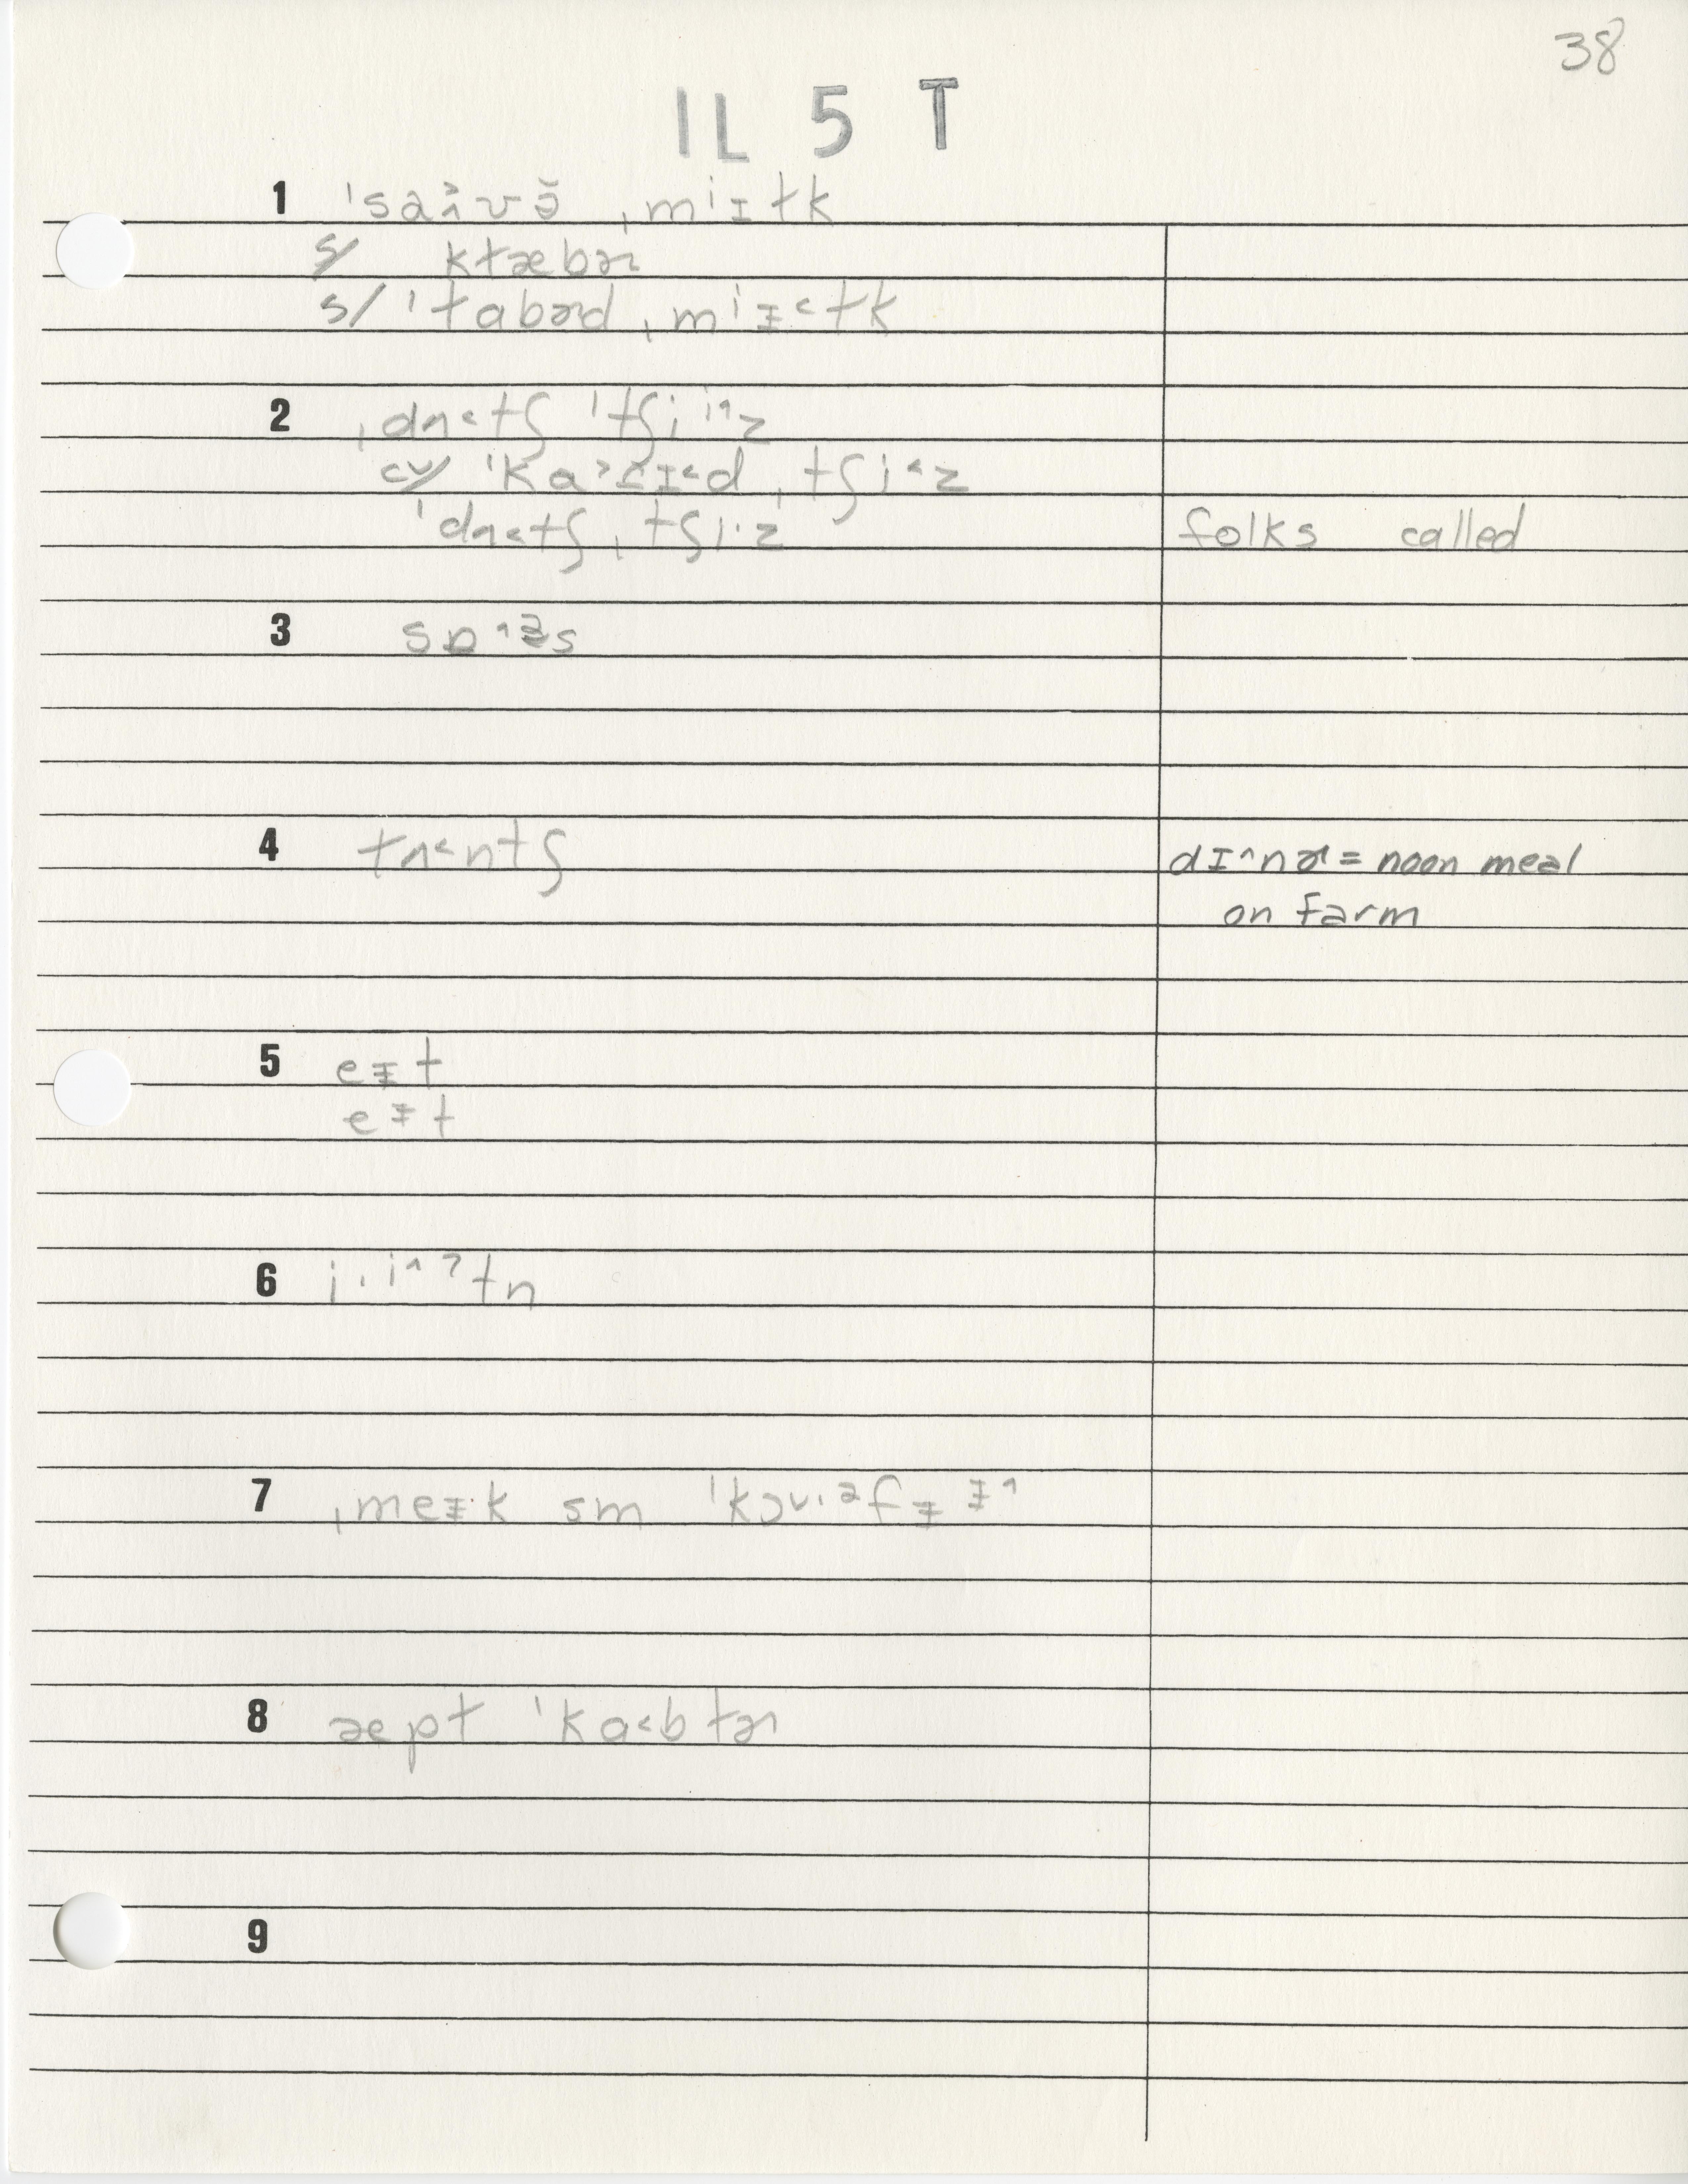 38
1L 5 T
1 ˈsaɪvɚ̆ ˌmɪɫk
s/ kɫæbɚ
s/ ˈɫabɚd ˌmɪ˂ɫk
2 ˌdʌ˂tʃ ˈtʃiiˑ^z
cv/ ˈka˃ɾɪ˂d ˌtʃi˂z
ˈdʌ˂tʃ ˌtʃi·z folks called
3 sɒ^s
4 lʌ˂ntʃ dɪ^nɚ = noon meal
on farm
5 eɪt
eɪt
6 i·i^ʔtn
7 ˌmeɪ·k sm ˈkɔ·əfɪɪ^
8 æpɫ ˈka˂bɫɚ
9